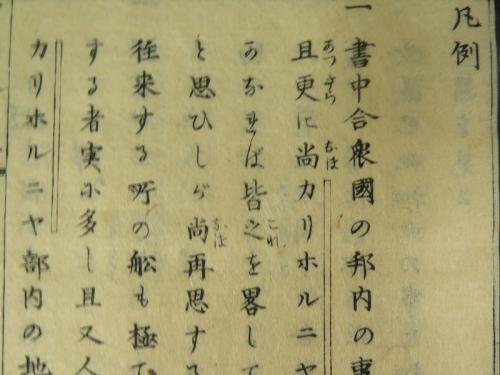 凡例
一 書中合衆國の邦内の事
且更に尚カリホルニヤ
のなれば皆之を畧して
と思ひしが尚再思する
往来する所の舩も極て
する者実に多し且又人
カリホルニヤ部内の地